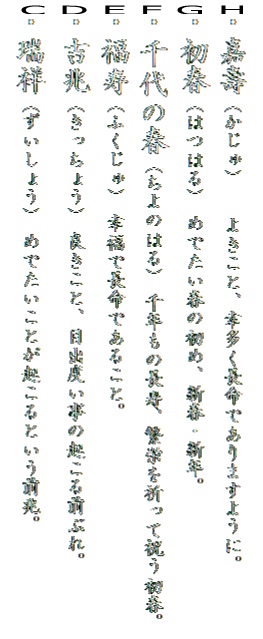 H 嘉寿（かじゅ） よきこと、幸多く長命でありますように。
G 初春（はつはる） めでたい春の初め、新春・新年。
F 千代の春（ちよのはる） 千年もの長是、繁栄を祈って祝う初春。
E 福寿（ふくじゅ） 幸福で長命であること。
D 吉兆（きっちょう） 良きこと、目出度い事の起こる前ぶれ。
C 瑞祥（ずいしょう） めでたいことが起こるという前兆。